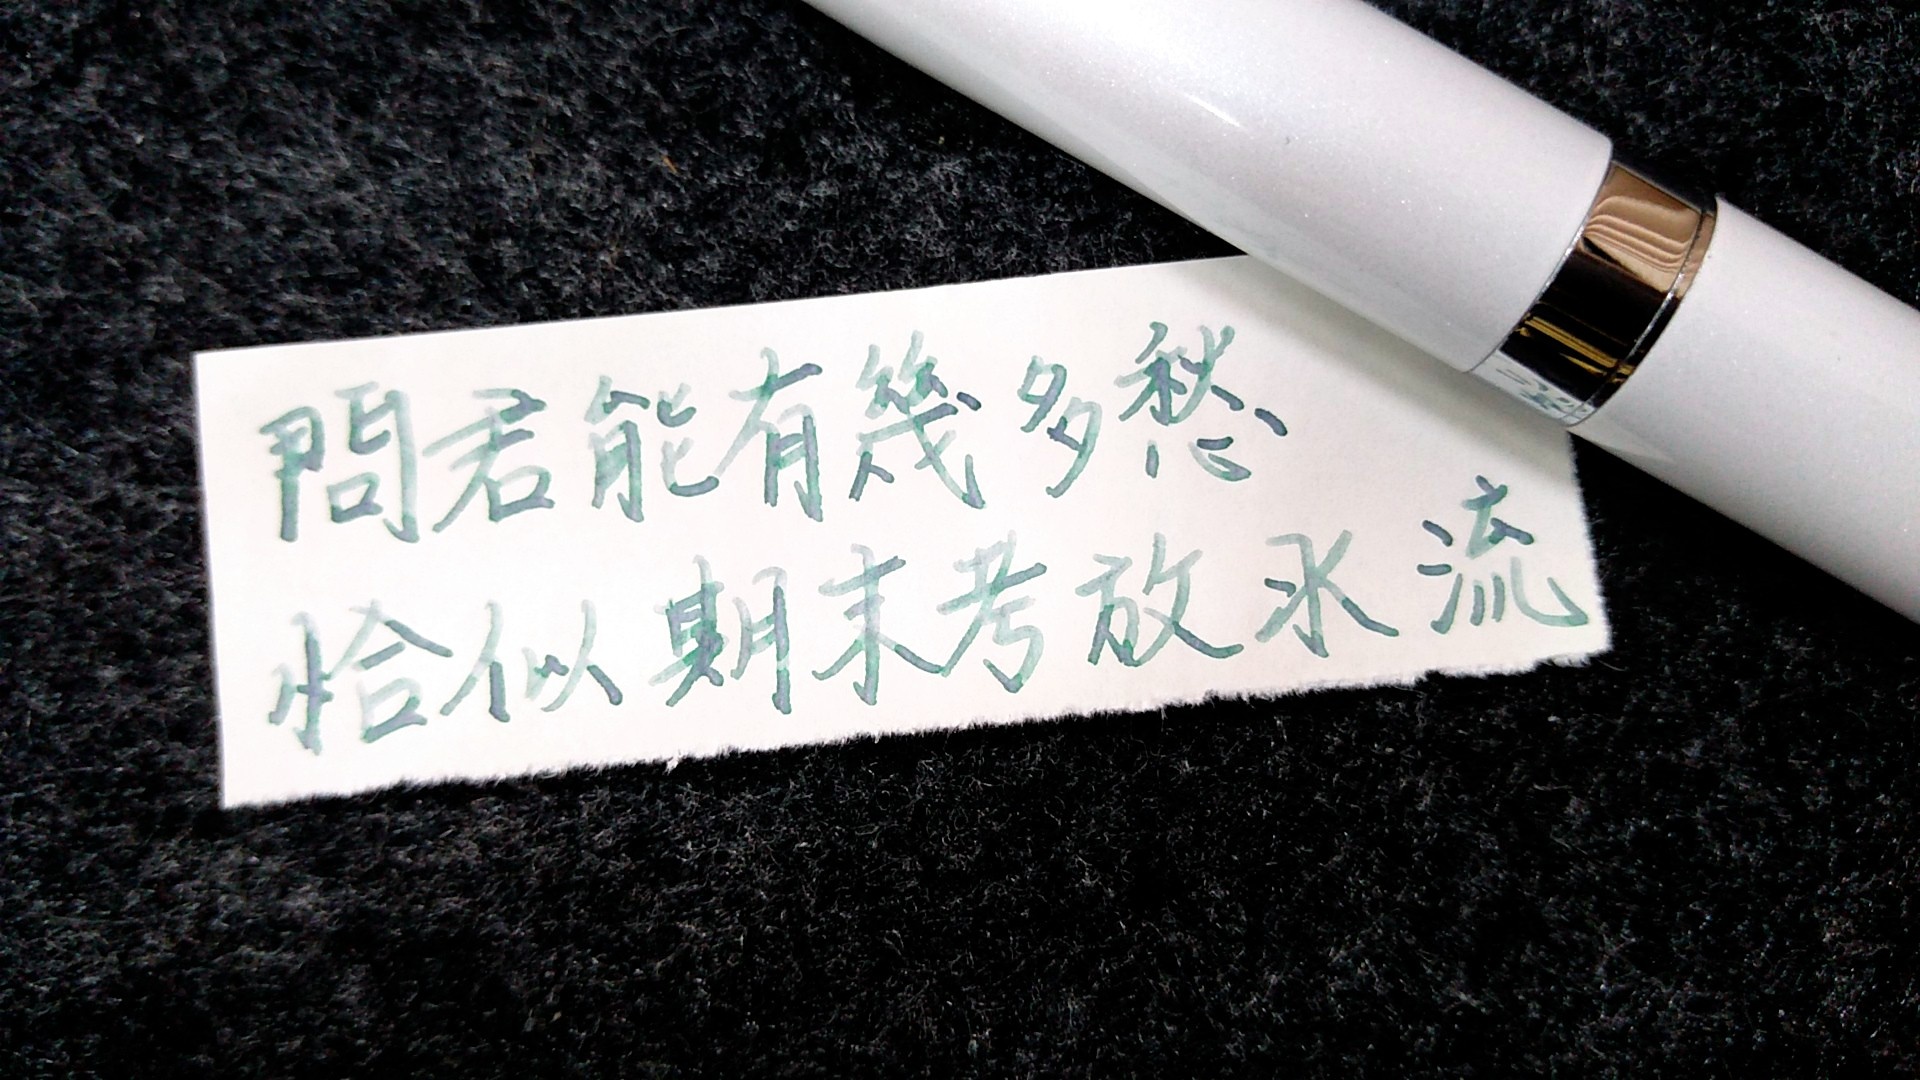 問君能有幾多愁
恰似期末考放水流